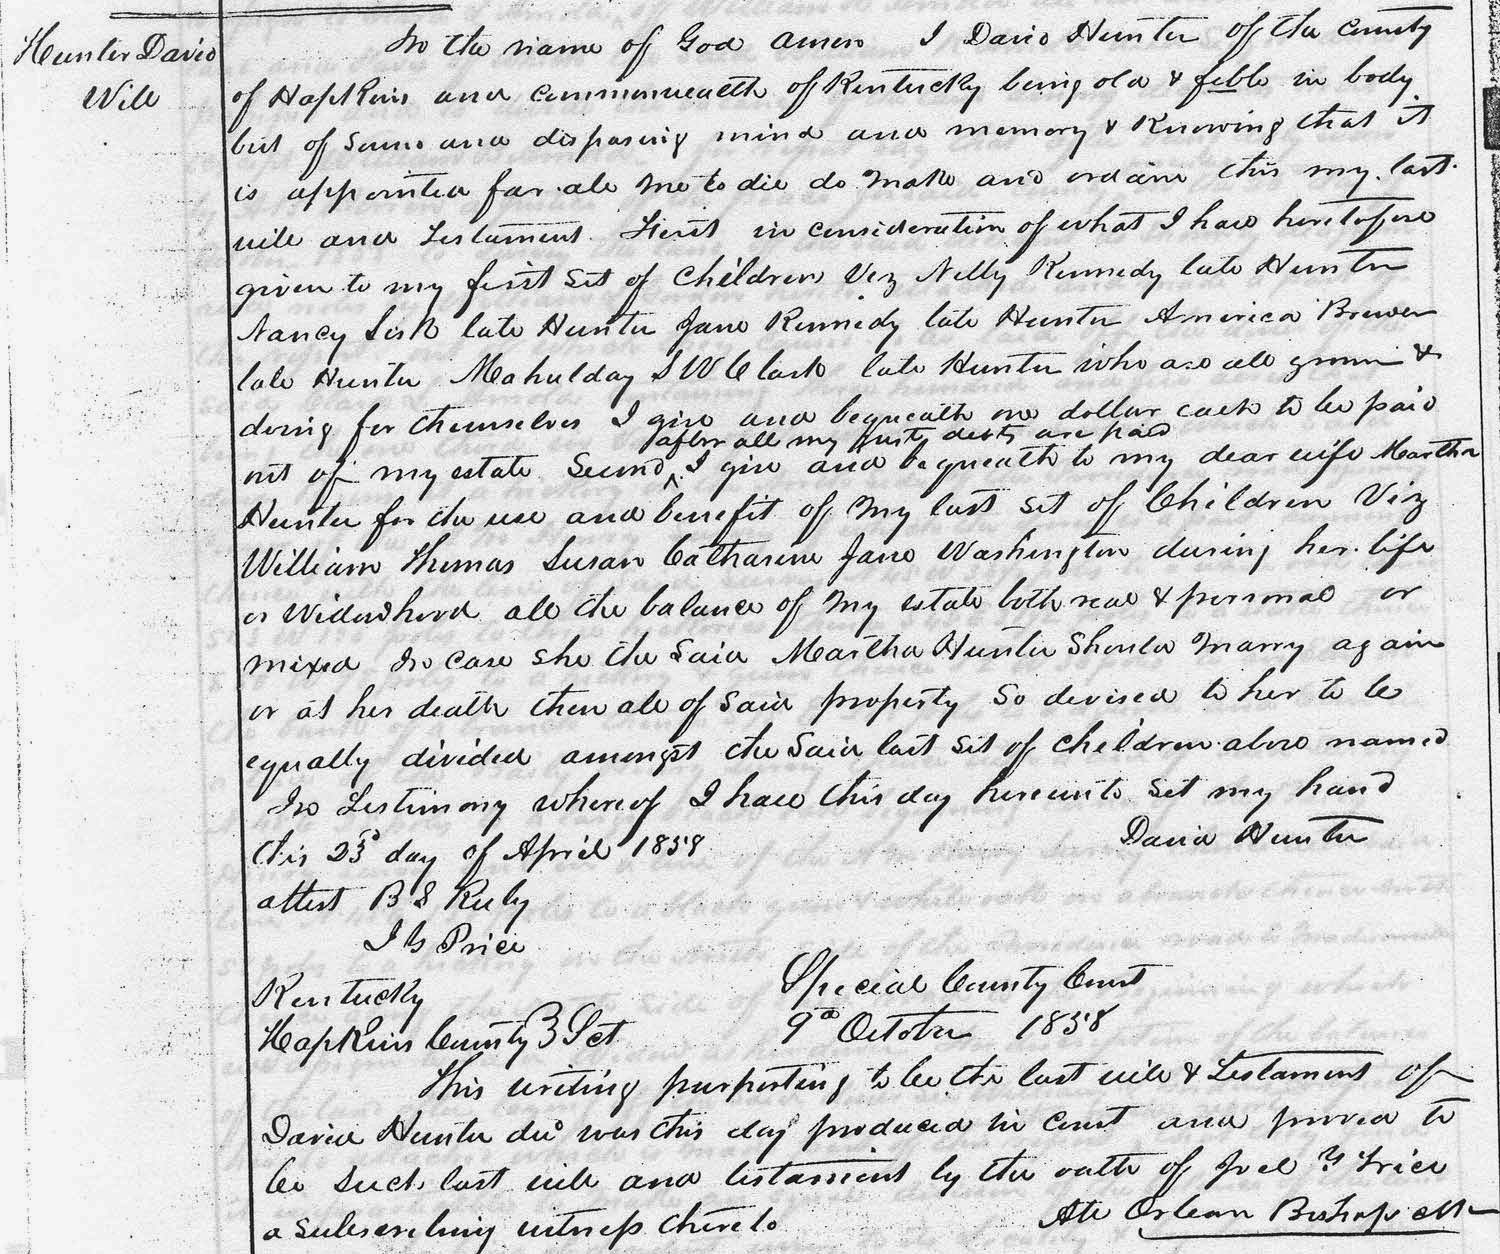 Hunter David
Will
In the name of God amen I David Hunter of the County
of Hopkins and commonwealth of Kentucky being old & feble in body
but of Sound and disposing mind and memory & Knowing that it
is appointed for all men to die do make and ordain this my last
will and testament First in consideration of what I have heretofore
given to my first set of children Viz Nelly Kennedy late Hunter
Nancy Sisk late Hunter Jane Kennedy late Hunter America Brewer
late Hunter Mahulday S W Clark late Hunter who are all grown &
doing for themselves I give and bequeath one dollar each to be paid
after all my just debts are paid
out of my estate Second ^ I give and bequeath to my dear wife Martha
Hunter for the use and benefit of my last set of Children Viz
William Thomas Susan Catharine Jane Washington during her life
or Widowhood all the balance of my estate both real & personal or
mixed In case she the Said Martha Hunter Should Marry again
or at her death then all of Said property So devised to her to be
equally divided amongst the Said last set of children above named
In Testimony whereof I have this day hereunto Set my hand
this 23d day of April 1858
David Hunter
attest B S Ruby
J Y Price
Kentucky
Hopkins County } Sct
Special County Court
9th October 1858
This writing purporting to be the last will & Testament of
David Hunter decd was this day produced in Court and proved to
be Such last will and testament by the oath of Joel Y Price
a subscribing witness thereto
Att Orlean Bishop